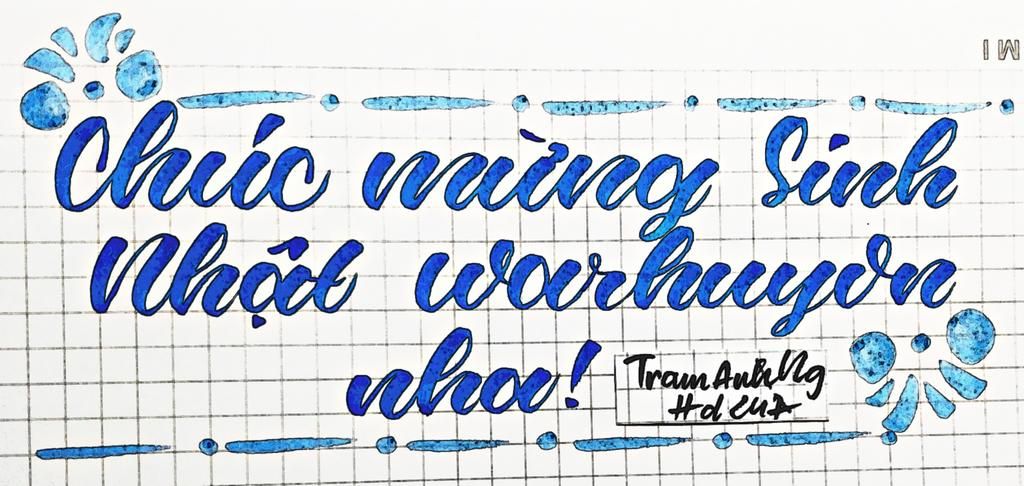 Chúc mừng Sinh
Nhật warhuyon
nha!
TramAnhNg